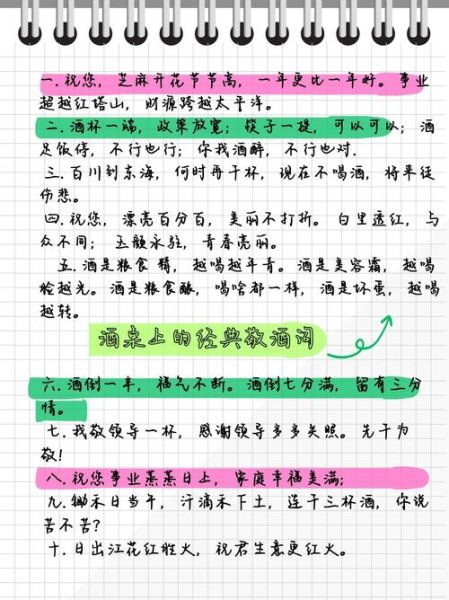 一.祝您，芝麻开花节节高，一年更比一年好。事业
超越红塔山，财源跨越太平洋。
二.酒杯一端，政策放宽；筷子一提，可以可以；酒
足饭停，不行也行；你我酒醉，不行也对.
三.百川到东海，何时再干杯，现在不喝酒，将来徒
伤悲。
四.祝您，漂亮百分百，美丽不打折。白里透红，与
众不同；玉颜永驻，青春亮丽。
五.酒是粮食精，越喝越年青。酒是美容霜，越喝
脸越光。酒是粮食酿，喝啥都一样，酒是坏蛋，越喝
越转。
酒桌上的经典敬酒词
六.酒倒一半，福气不断。酒倒七分满，留有三分
情。
七.我敬领导一杯，感谢领导多多关照。先干为
敬!
八.祝您事业蒸蒸日上，家庭幸福美满;
九.锄禾日当午，汗滴禾下土，连干三杯酒，你说
苦不苦?
十.日出江花红胜火，祝君生意更红火。